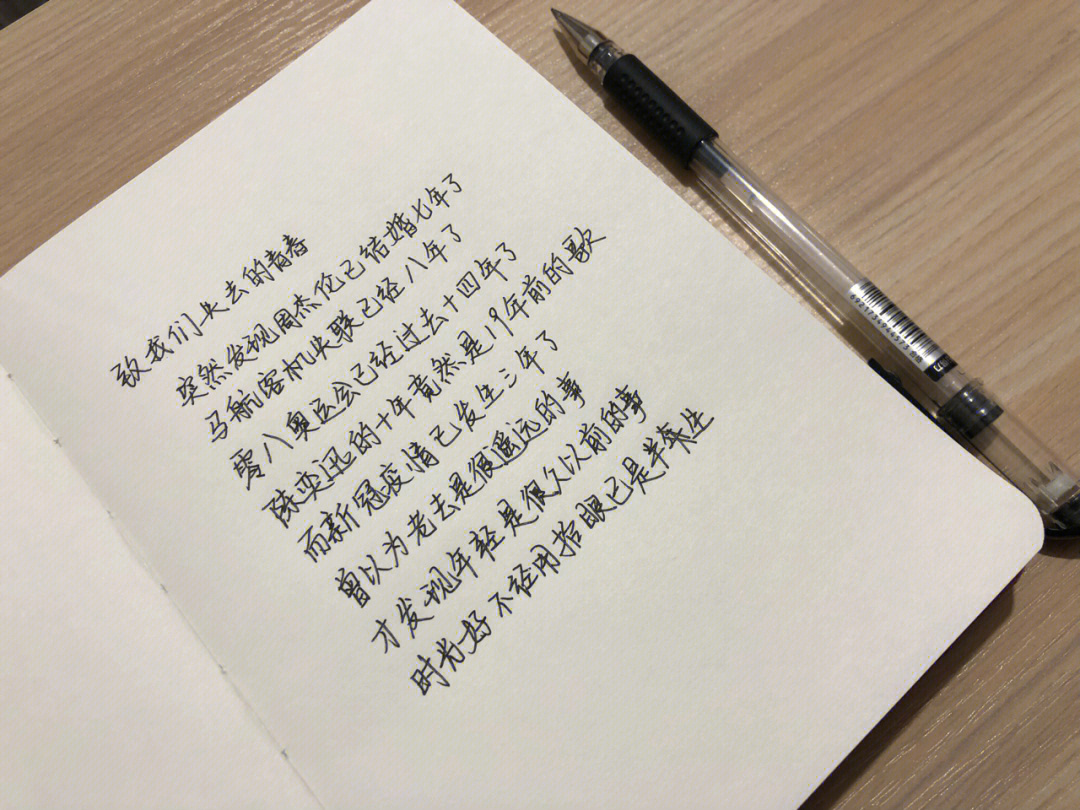 致我们失去的青春
突然发现周杰伦已结婚七年了
马航客机失联已经八年了
零八奥运会已经过去十四年了
陈奕迅的十年竟然是19年前的歌
而新冠疫情已发生三年了
曾以为老去是很遥远的事
才发现年轻是很久以前的事
时光好不经用抬眼已是半生